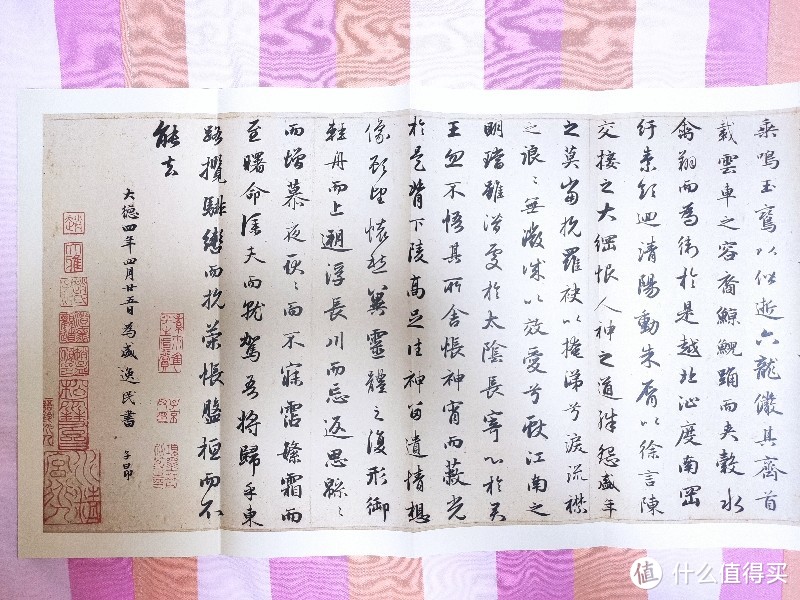 乘鳴玉鸞以偕逝六龍儼其齊首
載雲車之容裔鯨鯢踊而夾轂水
禽翔而為衛於是越北沚度南岡
紆素領迴清陽動朱脣以徐言陳
交接之大綱恨人神之道殊怨盛年
之莫當抗羅袂以掩涕兮淚流襟
之浪〻無微誠以效愛兮獻江南之
明璫雖潛處於太陰長寄心於君
王忽不悟其所舍悵神宵而蔽光
於是背下陵高足往神留遺情想
像顧望懷愁冀靈體之復形御
輕舟而上遡浮長川而忘返思緜〻
而增慕夜耿〻而不寐霑繁霜而
至曙命僕夫而就駕吾將歸乎東
路攬騑轡而抗策悵盤桓而不
能去
大德四年四月廿五日為盛逸民書 子昂
值 什么值得买